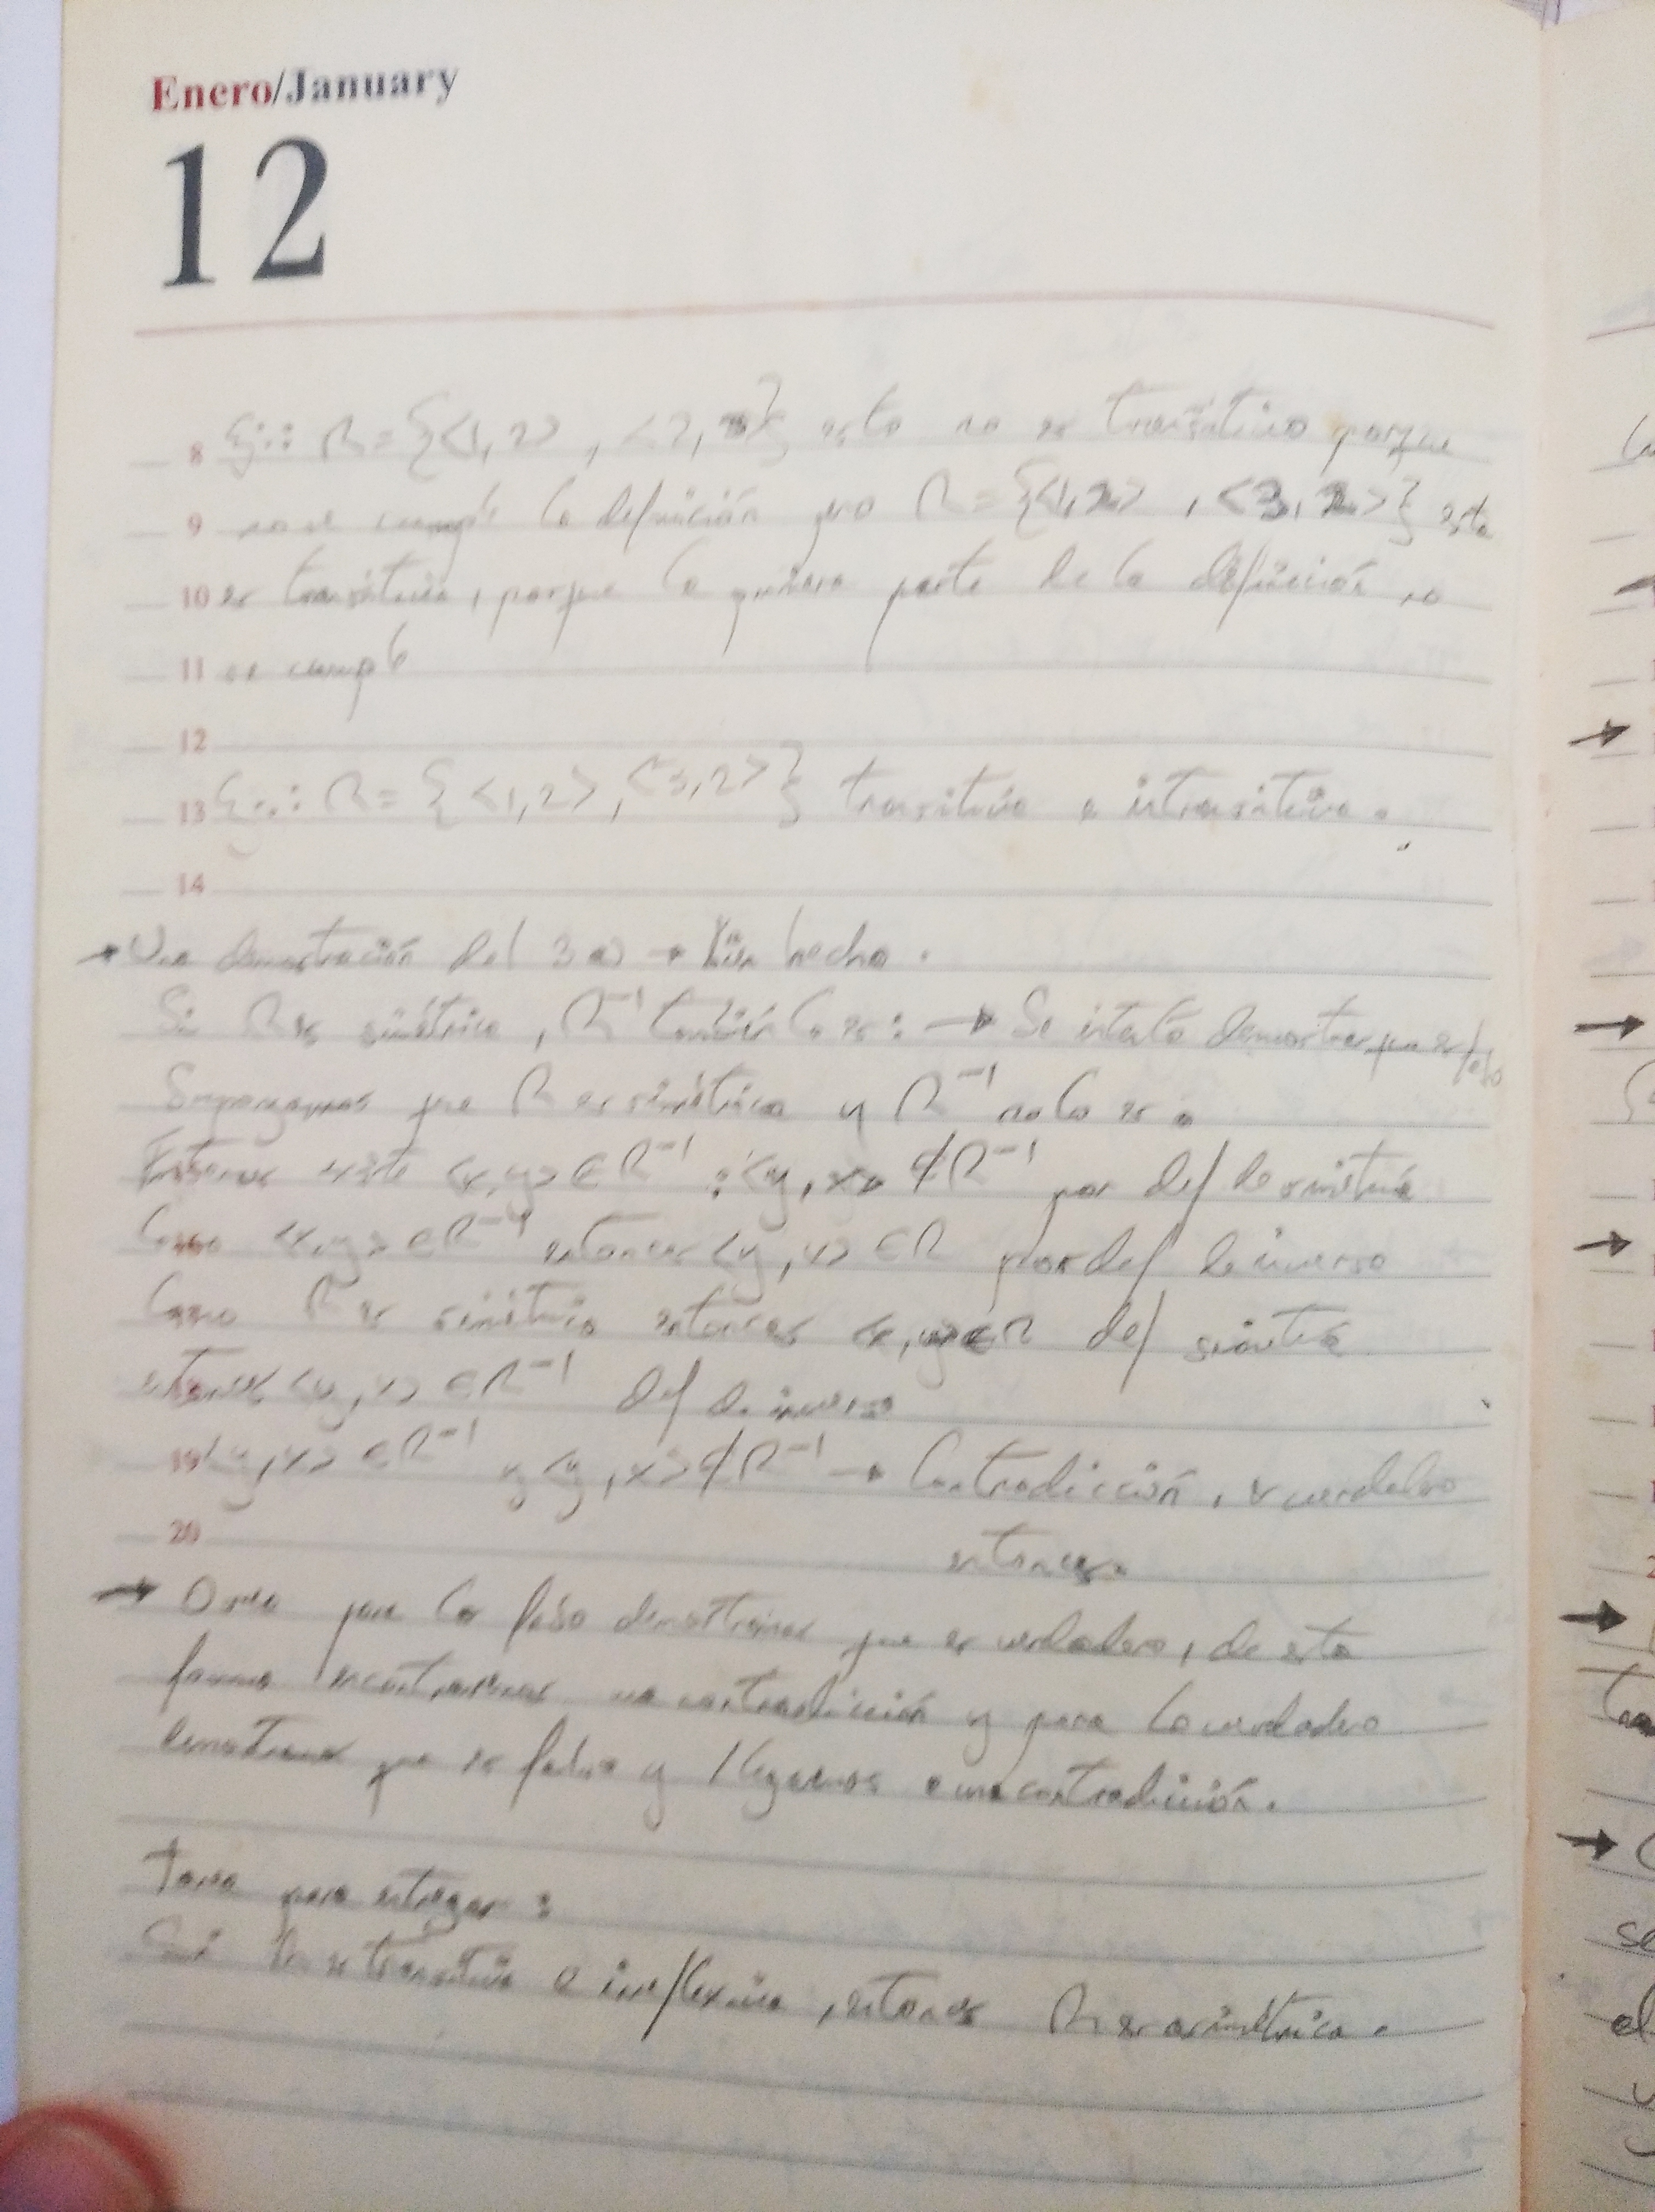 Enero/January
12
8 Ej.: R = {<1,2>, <2,3>} esto no es transitivo porque
9 no se cumple la definición pero R = {<1,2>, <3,2>} esta
10 es transitiva, porque la primera parte de la definición no
11 se cumple
12
13 Ej.: R = {<1,2>, <3,2>} transitiva e intransitiva.
14
→ Una demostración del 3a) → Bien hecho.
Si R es simétrica, R⁻¹ también lo es: → Se intenta demostrar que es falso
Supongamos que R es simétrica y R⁻¹ no lo es.
Entonces existe <x,y> ∈ R⁻¹ : <y,x> ∉ R⁻¹ por def de simetría
Como <x,y> ∈ R⁻¹ entonces <y,x> ∈ R por def de inverso
Como R es simétrica entonces <x,y> ∈ R def simetría
entonces <y,x> ∈ R⁻¹ def de inverso
19 <y,x> ∈ R⁻¹ y <y,x> ∉ R⁻¹ → Contradicción, es verdadero
20
entonces.
→ O sea para los falso demostramos que es verdadero, de esta
forma encontraremos una contradicción y para lo verdadero
demostramos que es falso y llegamos a una contradicción.
Tarea para entregar:
Si R es transitiva e irreflexiva, entonces R es asimétrica.